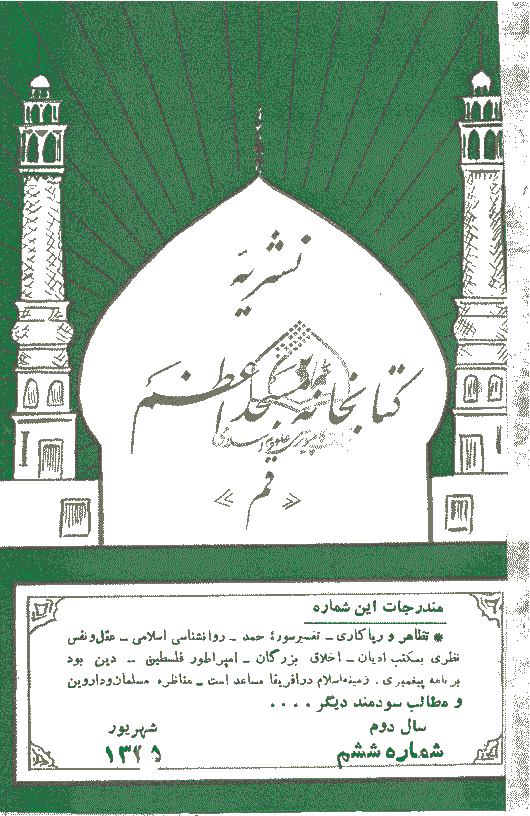 نشریهٔ
کتابخانه مسجد اعظم
« قم »
مندرجات این شماره
* تظاهر و ریاکاری ـ تفسیر سورهٔ حمد ـ روانشناسی اسلامی ـ عقل و نفس
نظری بمکتب ادیان ـ اخلاق بزرگان ـ امپراطور فلسطین ـ دین بود
برنامه پیغمبری . زمینه اسلام در افریقا مساعد است ـ مناظره مسلمان و داروین
و مطالب سودمند دیگر . . . .
سال دوم
شهریور
شماره ششم